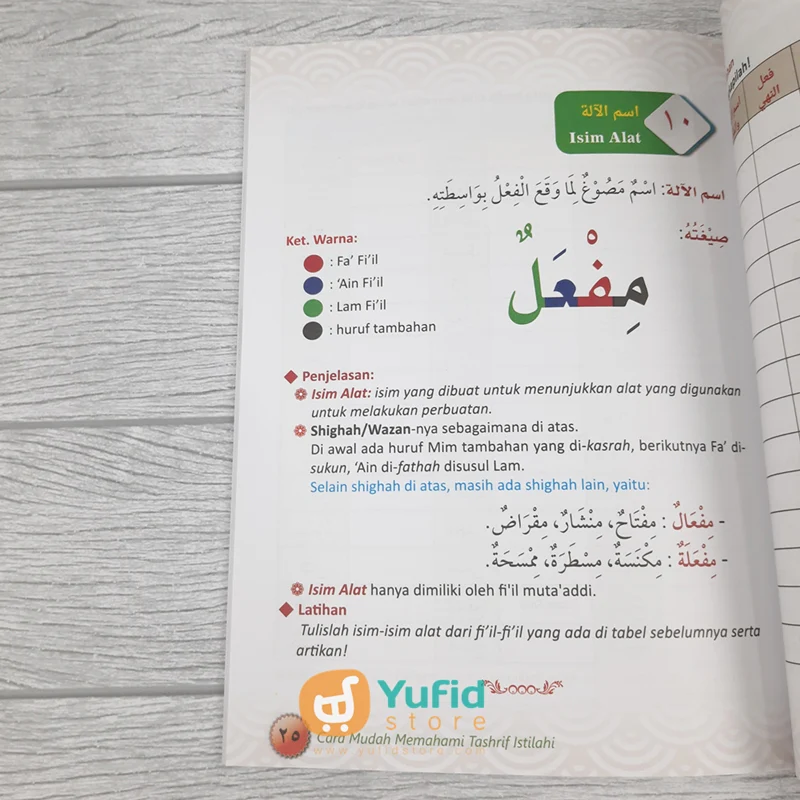 اسم الآلة
Isim Alat
١٠
اسم الآلة: اسْمٌ مَصُوْغٌ لِمَا وَقَعَ الْفِعْلُ بِوَاسِطَتِهِ.
صِيْغَتُهُ:
مِفْعَلٌ
Ket. Warna:
: Fa' Fi'il
: 'Ain Fi'il
: Lam Fi'il
: huruf tambahan
Penjelasan:
Isim Alat: isim yang dibuat untuk menunjukkan alat yang digunakan
untuk melakukan perbuatan.
Shighah/Wazan-nya sebagaimana di atas.
Di awal ada huruf Mim tambahan yang di-kasrah, berikutnya Fa' di-
sukun, 'Ain di-fathah disusul Lam.
Selain shighah di atas, masih ada shighah lain, yaitu:
- مِفْعَالٌ : مِفْتَاحٌ، مِنْشَارٌ، مِقْرَاضٌ.
- مِفْعَلَةٌ : مِكْنَسَةٌ، مِسْطَرَةٌ، مِمْسَحَةٌ.
Isim Alat hanya dimiliki oleh fi'il muta'addi.
Latihan
Tulislah isim-isim alat dari fi'il-fi'il yang ada di tabel sebelumnya serta
artikan!
Yufid
store
www.yufidstore.com
٢٥
Cara Mudah Memahami Tashrif Istilahi
فعل
النهي